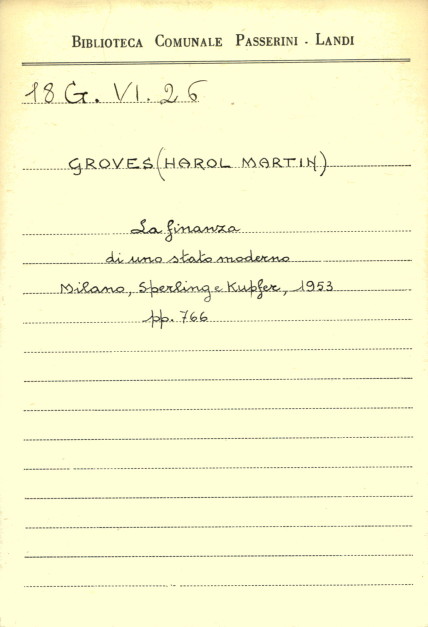 BIBLIOTECA COMUNALE PASSERINI - LANDI
18 G. VI. 26
GROVES (HAROL MARTIN)
La finanza
di uno stato moderno
Milano, Sperling e Kupfer, 1953
pp. 766